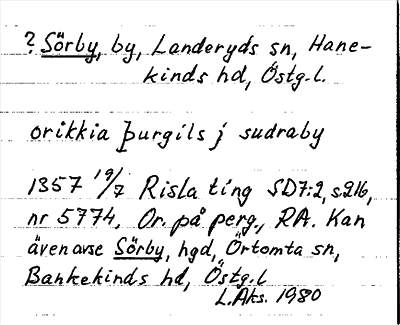 ? Sörby, by, Landeryds sn, Hane-
kinds hd, Östg.l.
orikkia þurgils j sudraby
1357 19/7 Risla ting SD7:2, s216,
nr 5774. Or. på perg., RA. Kan
även avse Sörby, hgd, Örtomta sn,
Bankekinds hd, Östg.l
L.Åks. 1980